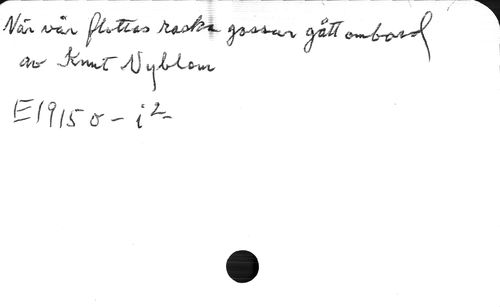 När vår flottas raska gossar gått ombord
av Knut Nyblom
E1915 o - i 2-